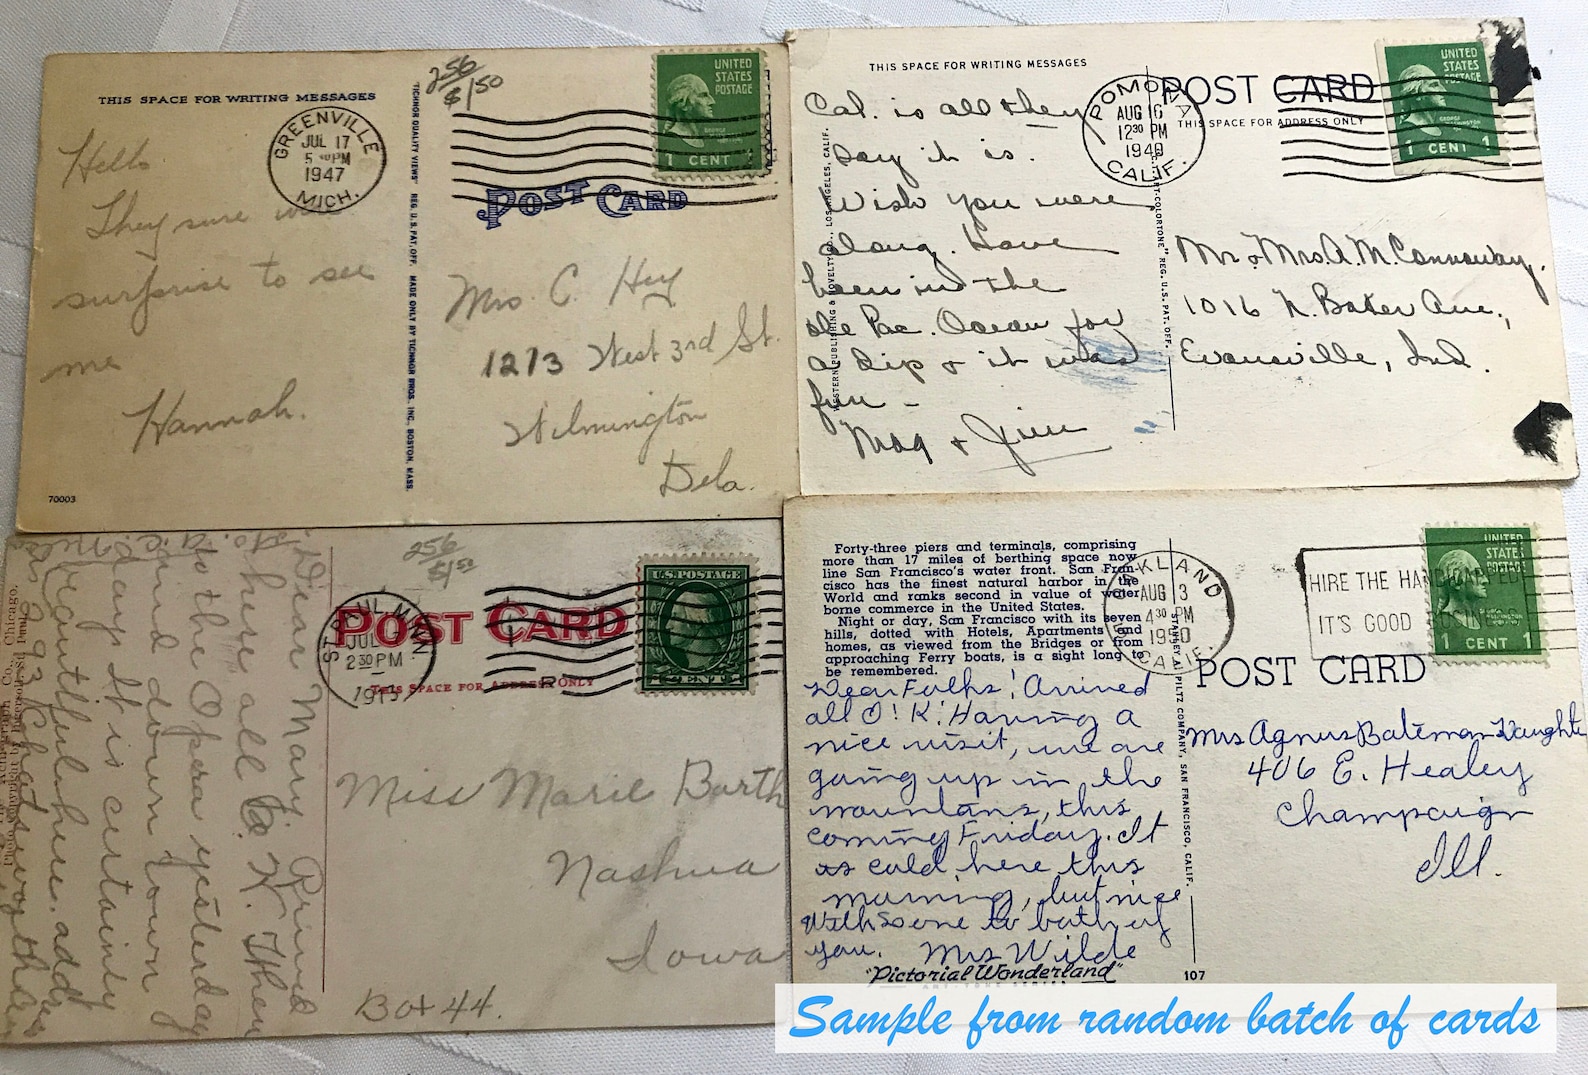 THIS SPACE FOR WRITING MESSAGES
GREENVILLE
JUL 17
PM
1947
MICH.
256
$1.50
UNITED
STATES
POSTAGE
1 CENT
POST CARD
Hello
They sure
surprise to see
me
Hannah.
"TICHNOR QUALITY VIEWS" REG. U.S. PAT. OFF. MADE ONLY BY TICHNOR BROS. INC., BOSTON, MASS.
Mrs. C. Huy
1213 West 3rd St.
Wilmington
Dela.
70003
THIS SPACE FOR WRITING MESSAGES
POMONA
AUG 16
12 30 PM
1940
CALIF.
POST CARD
THIS SPACE FOR ADDRESS ONLY
UNITED
STATES
POSTAGE
GEORGE
WASHINGTON
1 CENT 1
Cal. is all they
say it is.
Wish you were
along. Have
been in the
Pac. Ocean for
a dip & it was
fun –
Mag & Jim
WESTERN PUBLISHING & NOVELTY CO., LOS ANGELES, CALIF.
ART-COLORTONE" REG. U.S. PAT. OFF.
Mr. & Mrs. A. M. Connoway.
1016 N. Baker Ave.,
Evansville, Ind.
256
ST. PAUL MINN
JUL
2 30 PM
POST CARD
THIS SPACE FOR ADDRESS ONLY
U.S. POSTAGE
CENTS
Dear Mary: Arrived
here all O.K. Then
to the Opera yesterday
and down town
today. It is certainly
beautiful here.
Miss Marie Barth
Nashua
Iowa
Box 44.
Forty-three piers and terminals, comprising
more than 17 miles of berthing space now
line San Francisco's water front. San Fran-
cisco has the finest natural harbor in the
World and ranks second in value of water
borne commerce in the United States.
Night or day, San Francisco with its seven
hills, dotted with Hotels, Apartments and
homes, as viewed from the Bridges or from
approaching Ferry boats, is a sight long to
be remembered.
OAKLAND
AUG 13
4 30 PM
CALIF.
HIRE THE HANDICAPPED
IT'S GOOD BUSINESS
UNITED
STATES
POSTAGE
1 CENT 1
POST CARD
Dear Folks! Arrived
all O! K! Having a
nice visit, we are
going up in the
mountans, this
coming Friday. It
is cold here this
morning, but nice
With Love to both of
you. Mrs Wilde
STANLEY A. PILTZ COMPANY, SAN FRANCISCO, CALIF.
Mrs Agnus Bateman Daughte
406 E. Healey
Champaign
Ill.
"Pictorial Wonderland"
ART-TONE SERIES
107
Sample from random batch of cards